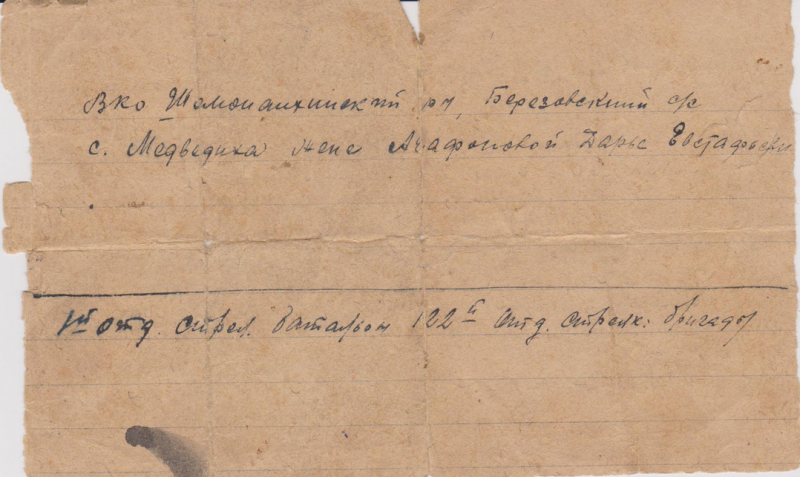 ВКО Шемонаихинский р-н, Березовский с/с
с. Медведка жене Агафоновой Дарье Евстафьевн
1й отд. стрел. батальон 122й отд. стрелк. бригады